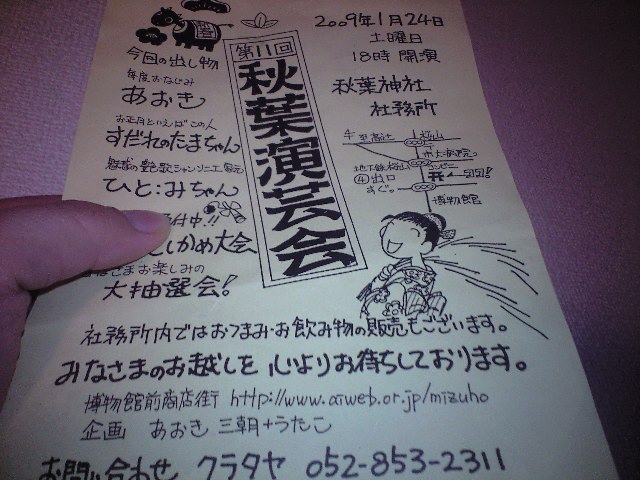 2009年1月24日
土曜日
18時 開演
秋葉神社
社務所
第11回
秋葉演芸会
今回の出し物
毎度おなじみ
あおき
お正月といえばこの人
すだれのたまちゃん
魅惑の艶歌シャンソニエ
ひと:みちゃん
付中!!
しかめ大会
さまお楽しみの
大抽選会!
桜山
地下鉄桜山
④出口
すぐ。
博物館
社務所内ではおつまみ・お飲み物の販売もございます。
みなさまのお越しを 心よりお待ちしております。
博物館前商店街 http://www.aiweb.or.jp/mizuho
企画 あおき 三朝+うたこ
お問い合わせ クラタヤ 052-853-2311